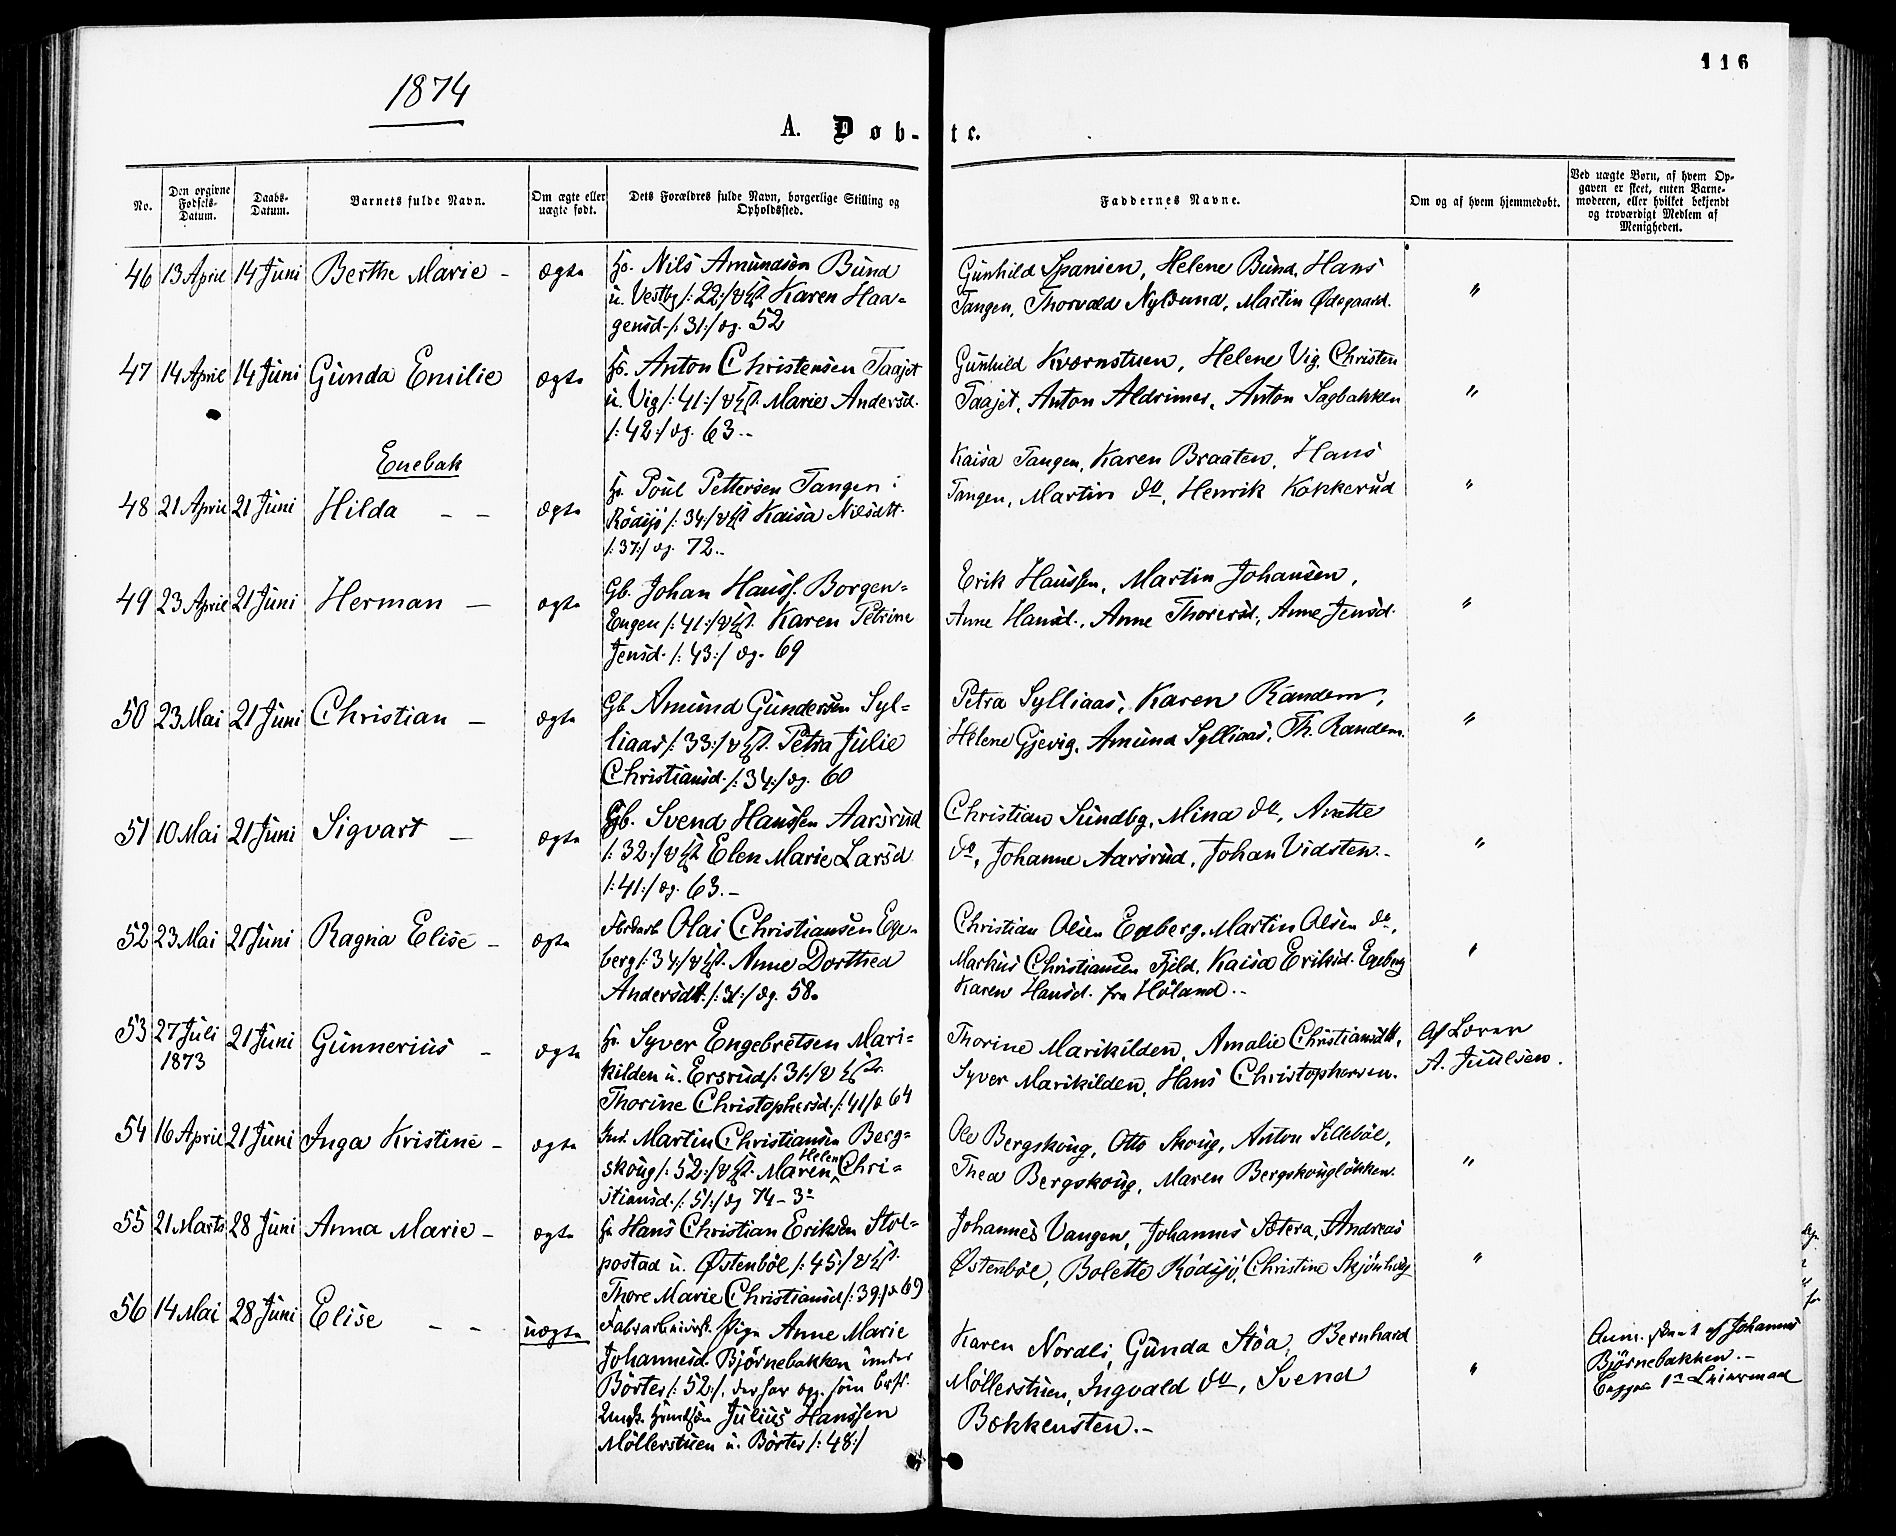 116
1874
A. Døb-te.
No.
Den opgivne Fødsels-Datum.
Daabs-Datum.
Barnets fulde Navn.
Om ægte eller uægte født.
Dets Forældres fulde Navn, borgerlige Stilling og Opholdssted.
Faddernes Navne.
Om og af hvem hjemmedøbt.
Ved uægte Børn, af hvem Opgaven er skeet, enten Barnemoderen, eller hvilket bekjendt og troværdigt Medlem af Menigheden.
46 13 April 14 Juni Berthe Marie - ægte
Hs. Nils Amundsen Bund
u. Vestby /:22:/ Karen Haa=
gensd. /:31:/ og. 52
Gunhild Spanien, Helene Bund, Hans
Tangen, Thorvald Nylund, Martin Ødegaard.
"
47 14 April 14 Juni Gunda Emilie ægte
Hs. Anton Christensen Taajet
u. Vig /:41:/ Marie Andersd.
/:42:/ og. 63.-
Gunhild Kværnstuen, Helene Vig, Christen
Taajet, Anton Aldrimer, Anton Sagbakken
"
Enebak
48 21 April 21 Juni Hilda - - ægte
Hs. Poul Pettersen Tangen
Rødsjø /:34:/ Kaisa Nilsdtt.
/:37:/ og. 72.-
Kaisa Tangen, Karen Braaten, Hans
Tangen, Martin do, Henrik Kokkerud
"
49 23 April 21 Juni Herman - ægte
Gb. Johan Hanss. Borgen=
Engen /:41:/ Karen Petrine
Jensd. /:43:/ og. 69
Erik Hanssen, Martin Johansen,
Anne Hansd., Anne Thorersd., Anne Jensd.
"
50 23 Mai 21 Juni Christian - ægte
Gb Amund Gundersen Syl=
liaas /:33:/ Petra Julie
Christiansd. /:34:/ og. 60
Petra Sylliaas, Karen Randem,
Helene Gjevig, Amund Sylliaas, Th. Randem.
"
51 10 Mai 21 Juni Sigvart - ægte
Gb. Svend Hanssen Aarsrud
/:32:/ Elen Marie Larsd
/:41:/ og. 63.-
Christian Sundby, Mina do, Anette
do, Johanne Aarsrud, Johan Vidsten.-
"
52 23 Mai 21 Juni Ragna Elise - ægte
Olai Christiansen Ege=
berg /:34:/ Anne Dorthea
Andersdtt. /:31:/ og. 58.
Christian Olsen Egeberg, Martin Olsen do,
Markus Christiansen Fjeld, Kaisa Eriksd. Egeberg
Karen Hansd. fra Høland.-
"
53 27 Juli 21 Juni Gunnerius - ægte
1873
Hs. Syver Engebretsen Mari=
kilden u. Ersrud /:31:/
Thorine Christophersd. /:41/ 64
Thorine Marikilden, Amalie Christiansdtt,
Syver Marikilden, Hans Christophersen.
Af Lærer
A. Juulsen.
54 16 April 21 Juni Inga Kristine - ægte
Martin Christiansen Berg=
Helene
skoug /:52:/ Maren Chri=
stiansd. /:51:/ og 74 - 3
Ole Bergskoug, Otto Skoug, Anton Sillebøl,
Thea Bergskoug, Maren Bergskougløkken.
"
55 21 Marts 28 Juni Anna Marie - ægte
Hs Hans Christian Eriksen Stol=
postad u. Østenbøl /:45:/
Thore Marie Christiansd /:39:/ 69
Johannes Vangen, Johannes Sætera, Andreas
Østenbøl, Bolette Rødsjø, Christine Skjønhaug
"
56 14 Mai 28 Juni Elise - - uægte
Pige Anne Marie
Johannesd. Bjørnebakken under
Børter /:52:/, der har opg. som
Julius Hanssen
Møllerstuen u. Børter /:48:/
Karen Nordli, Gunda Støa, Bernhard
Møllerstuen, Ingvald do, Svend
Bækkensten.-
"
af Johannes
Bjørnebakken.-